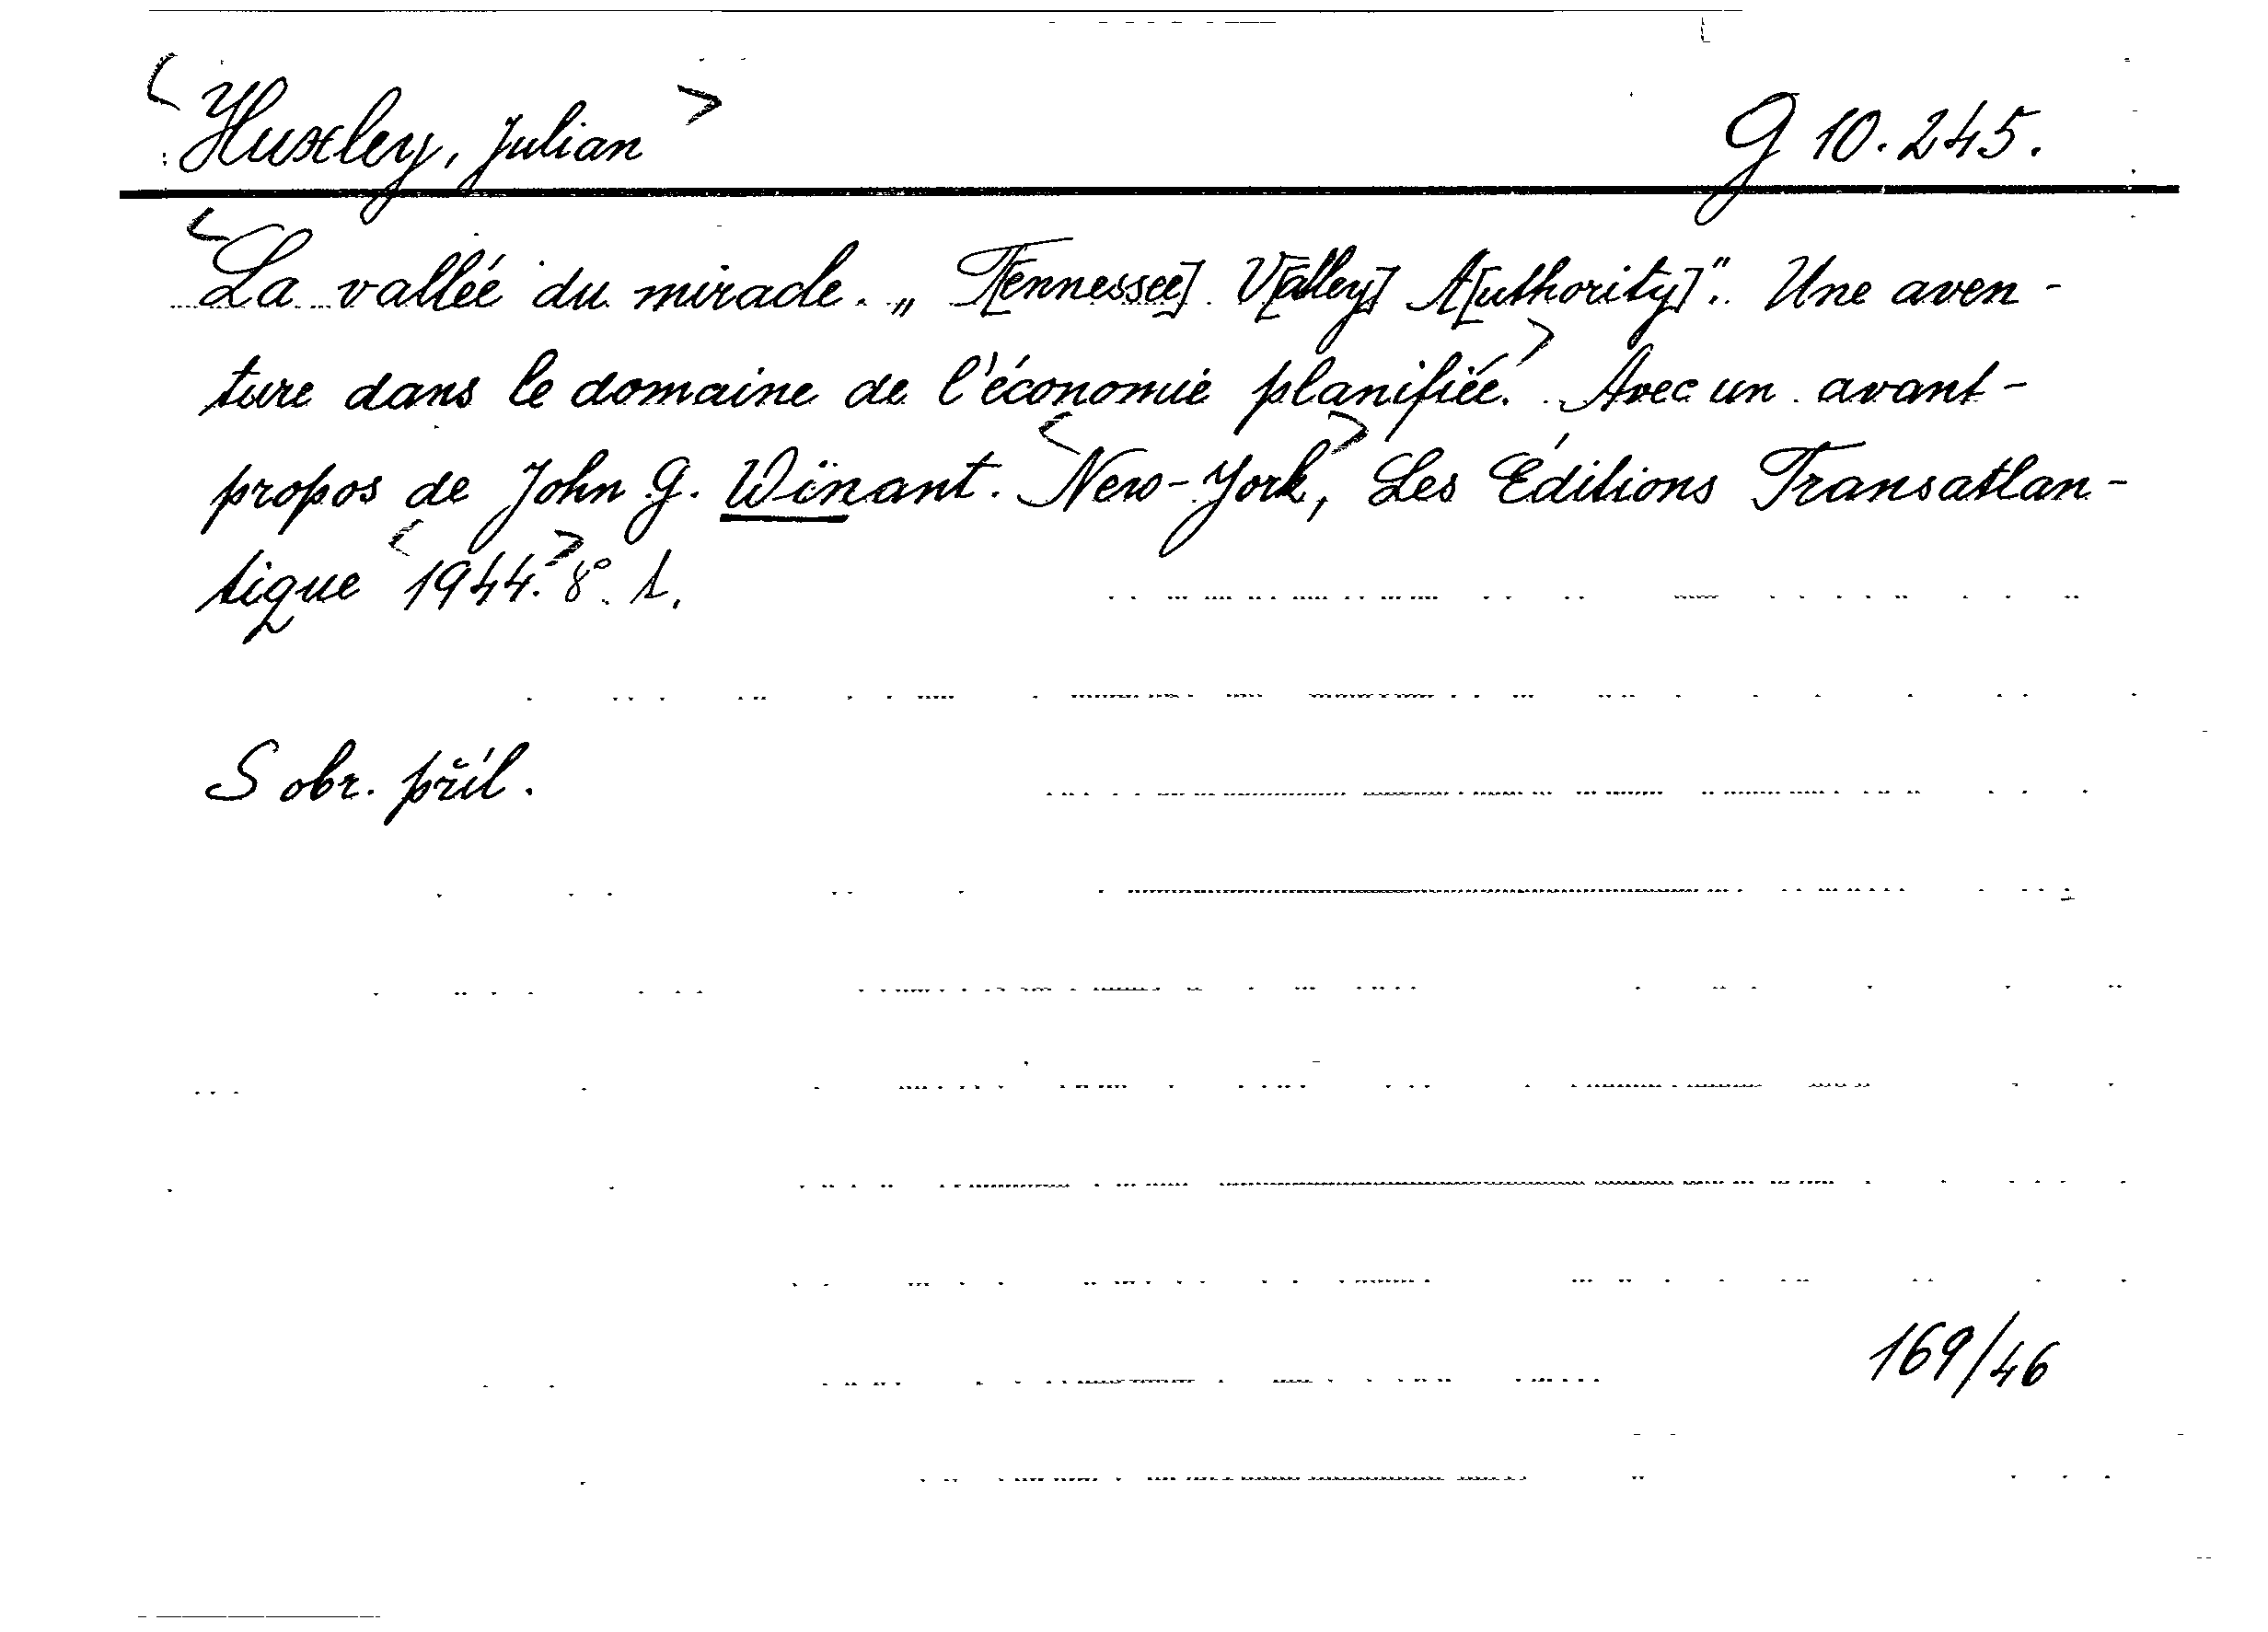 <Huxley, Julian> G 10.245.
<La vallée du miracle. „T[ennessee] V[alley] A[uthority]". Une aven-
ture dans le domaine de l'économie planifiée.> Avec un avant-
propos de John G. Winant. <New-York>, Les Éditions Transatlan-
tique <1944.> 8°. 1.
S obr. příl.
169/46